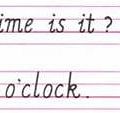 ime is it?
o'clock.